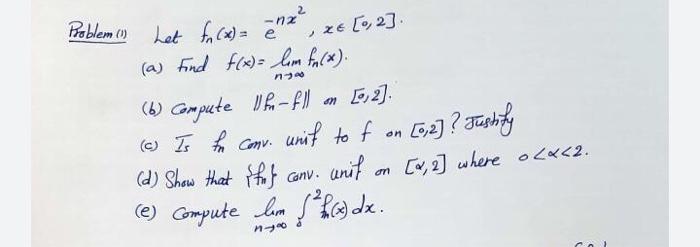 Problem (1) Let fₙ(x) = e^{-nx²}, x ∈ [0,2].
(a) Find f(x) = lim_{n→∞} fₙ(x).
(b) Compute ||fₙ-f|| on [0,2].
(c) Is fₙ conv. unif to f on [0,2]? Justify
(d) Show that {fₙ} conv. unif on [α,2] where 0<α<2.
(e) Compute lim_{n→∞} ∫₀² fₙ(x) dx.